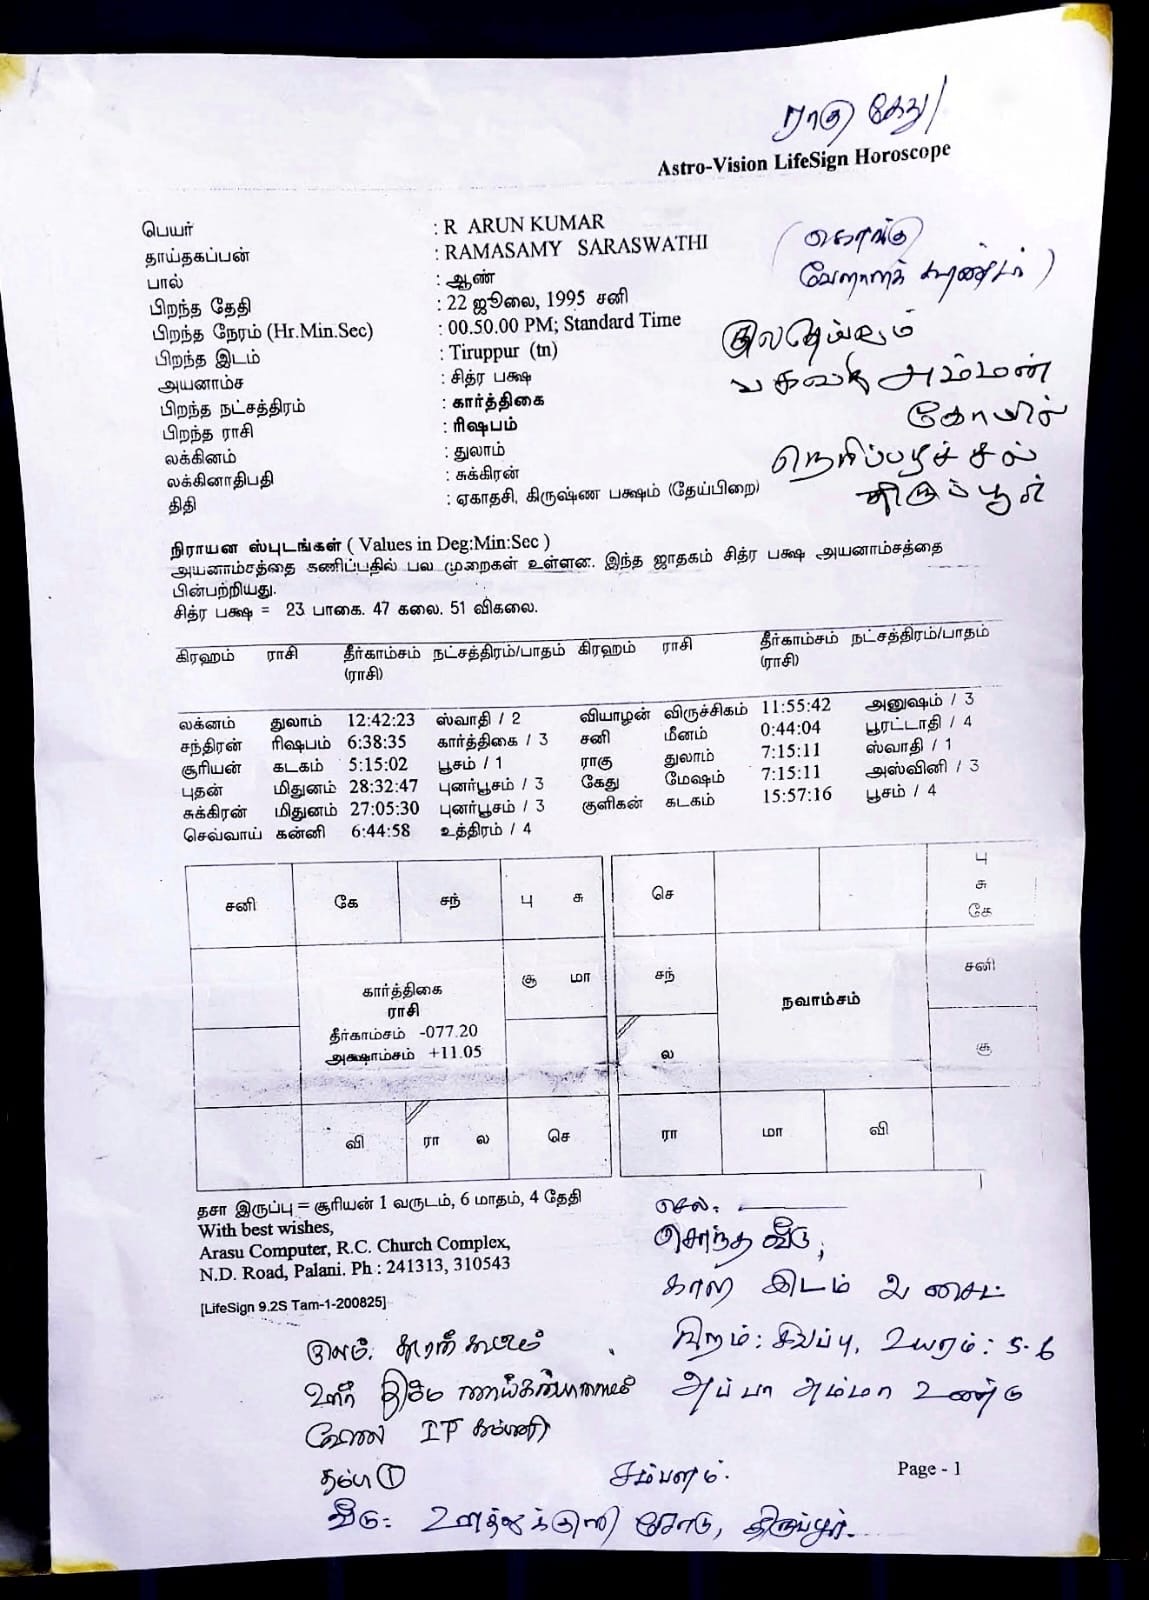 ராகு கேது/
Astro-Vision LifeSign Horoscope
பெயர் : R ARUN KUMAR
தாய்தகப்பன் : RAMASAMY SARASWATHI
பால் : ஆண்
பிறந்த தேதி : 22 ஜூலை, 1995 சனி
பிறந்த நேரம் (Hr.Min.Sec) : 00.50.00 PM; Standard Time
பிறந்த இடம் : Tiruppur (tn)
அயனாம்ச : சித்ர பக்ஷ
பிறந்த நட்சத்திரம் : கார்த்திகை
பிறந்த ராசி : ரிஷபம்
லக்கினம் : துலாம்
லக்கினாதிபதி : சுக்கிரன்
திதி : ஏகாதசி, கிருஷ்ண பக்ஷம் (தேய்பிறை)
(கொங்கு
வேளாளக் கவுண்டர்)
குலதெய்வம்
பகவதி அம்மன்
கோயில்
திருப்பூர்
நிராயன ஸ்புடங்கள் ( Values in Deg:Min:Sec )
அயனாம்சத்தை கணிப்பதில் பல முறைகள் உள்ளன. இந்த ஜாதகம் சித்ர பக்ஷ அயனாம்சத்தை
பின்பற்றியது.
சித்ர பக்ஷ = 23 பாகை. 47 கலை. 51 விகலை.
கிரஹம் ராசி தீர்காம்சம் நட்சத்திரம்/பாதம் கிரஹம் ராசி தீர்காம்சம் நட்சத்திரம்/பாதம்
(ராசி) (ராசி)
லக்னம் துலாம் 12:42:23 ஸ்வாதி / 2 வியாழன் விருச்சிகம் 11:55:42 அனுஷம் / 3
சந்திரன் ரிஷபம் 6:38:35 கார்த்திகை / 3 சனி மீனம் 0:44:04 பூரட்டாதி / 4
சூரியன் கடகம் 5:15:02 பூசம் / 1 ராகு துலாம் 7:15:11 ஸ்வாதி / 1
புதன் மிதுனம் 28:32:47 புனர்பூசம் / 3 கேது மேஷம் 7:15:11 அஸ்வினி / 3
சுக்கிரன் மிதுனம் 27:05:30 புனர்பூசம் / 3 குளிகன் கடகம் 15:57:16 பூசம் / 4
செவ்வாய் கன்னி 6:44:58 உத்திரம் / 4
சனி கே சந் பு சு
சூ மா
கார்த்திகை
ராசி
தீர்காம்சம் -077.20
அக்ஷாம்சம் +11.05
வி ரா ல செ
செ பு
சு
கே
சந் நவாம்சம் சனி
ல சூ
ரா மா வி
தசா இருப்பு = சூரியன் 1 வருடம், 6 மாதம், 4 தேதி
With best wishes,
Arasu Computer, R.C. Church Complex,
N.D. Road, Palani. Ph : 241313, 310543
[LifeSign 9.2S Tam-1-200825]
செல்:
சொந்த வீடு,
காலி இடம் 2 சைட்
நிறம்: சிவப்பு, உயரம்: 5.6
அப்பா அம்மா உண்டு
வேலை IT கம்பனி
தம்பி 1
சம்பளம்.
Page - 1
வீடு: ஊத்துக்குளி ரோடு, திருப்பூர்.